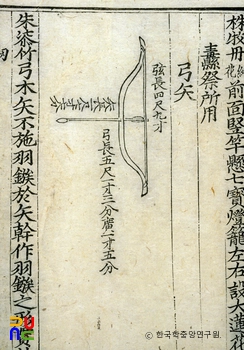 前面竪竿懸七寶燈籠左右設大蓮花
纛祭所用
弓矢
弦長四尺九寸
弓長五尺一寸三分廣一寸五分
朱漆竹弓木矢不施羽鏃於矢幹作羽鏃之形
© 한국학중앙연구원.